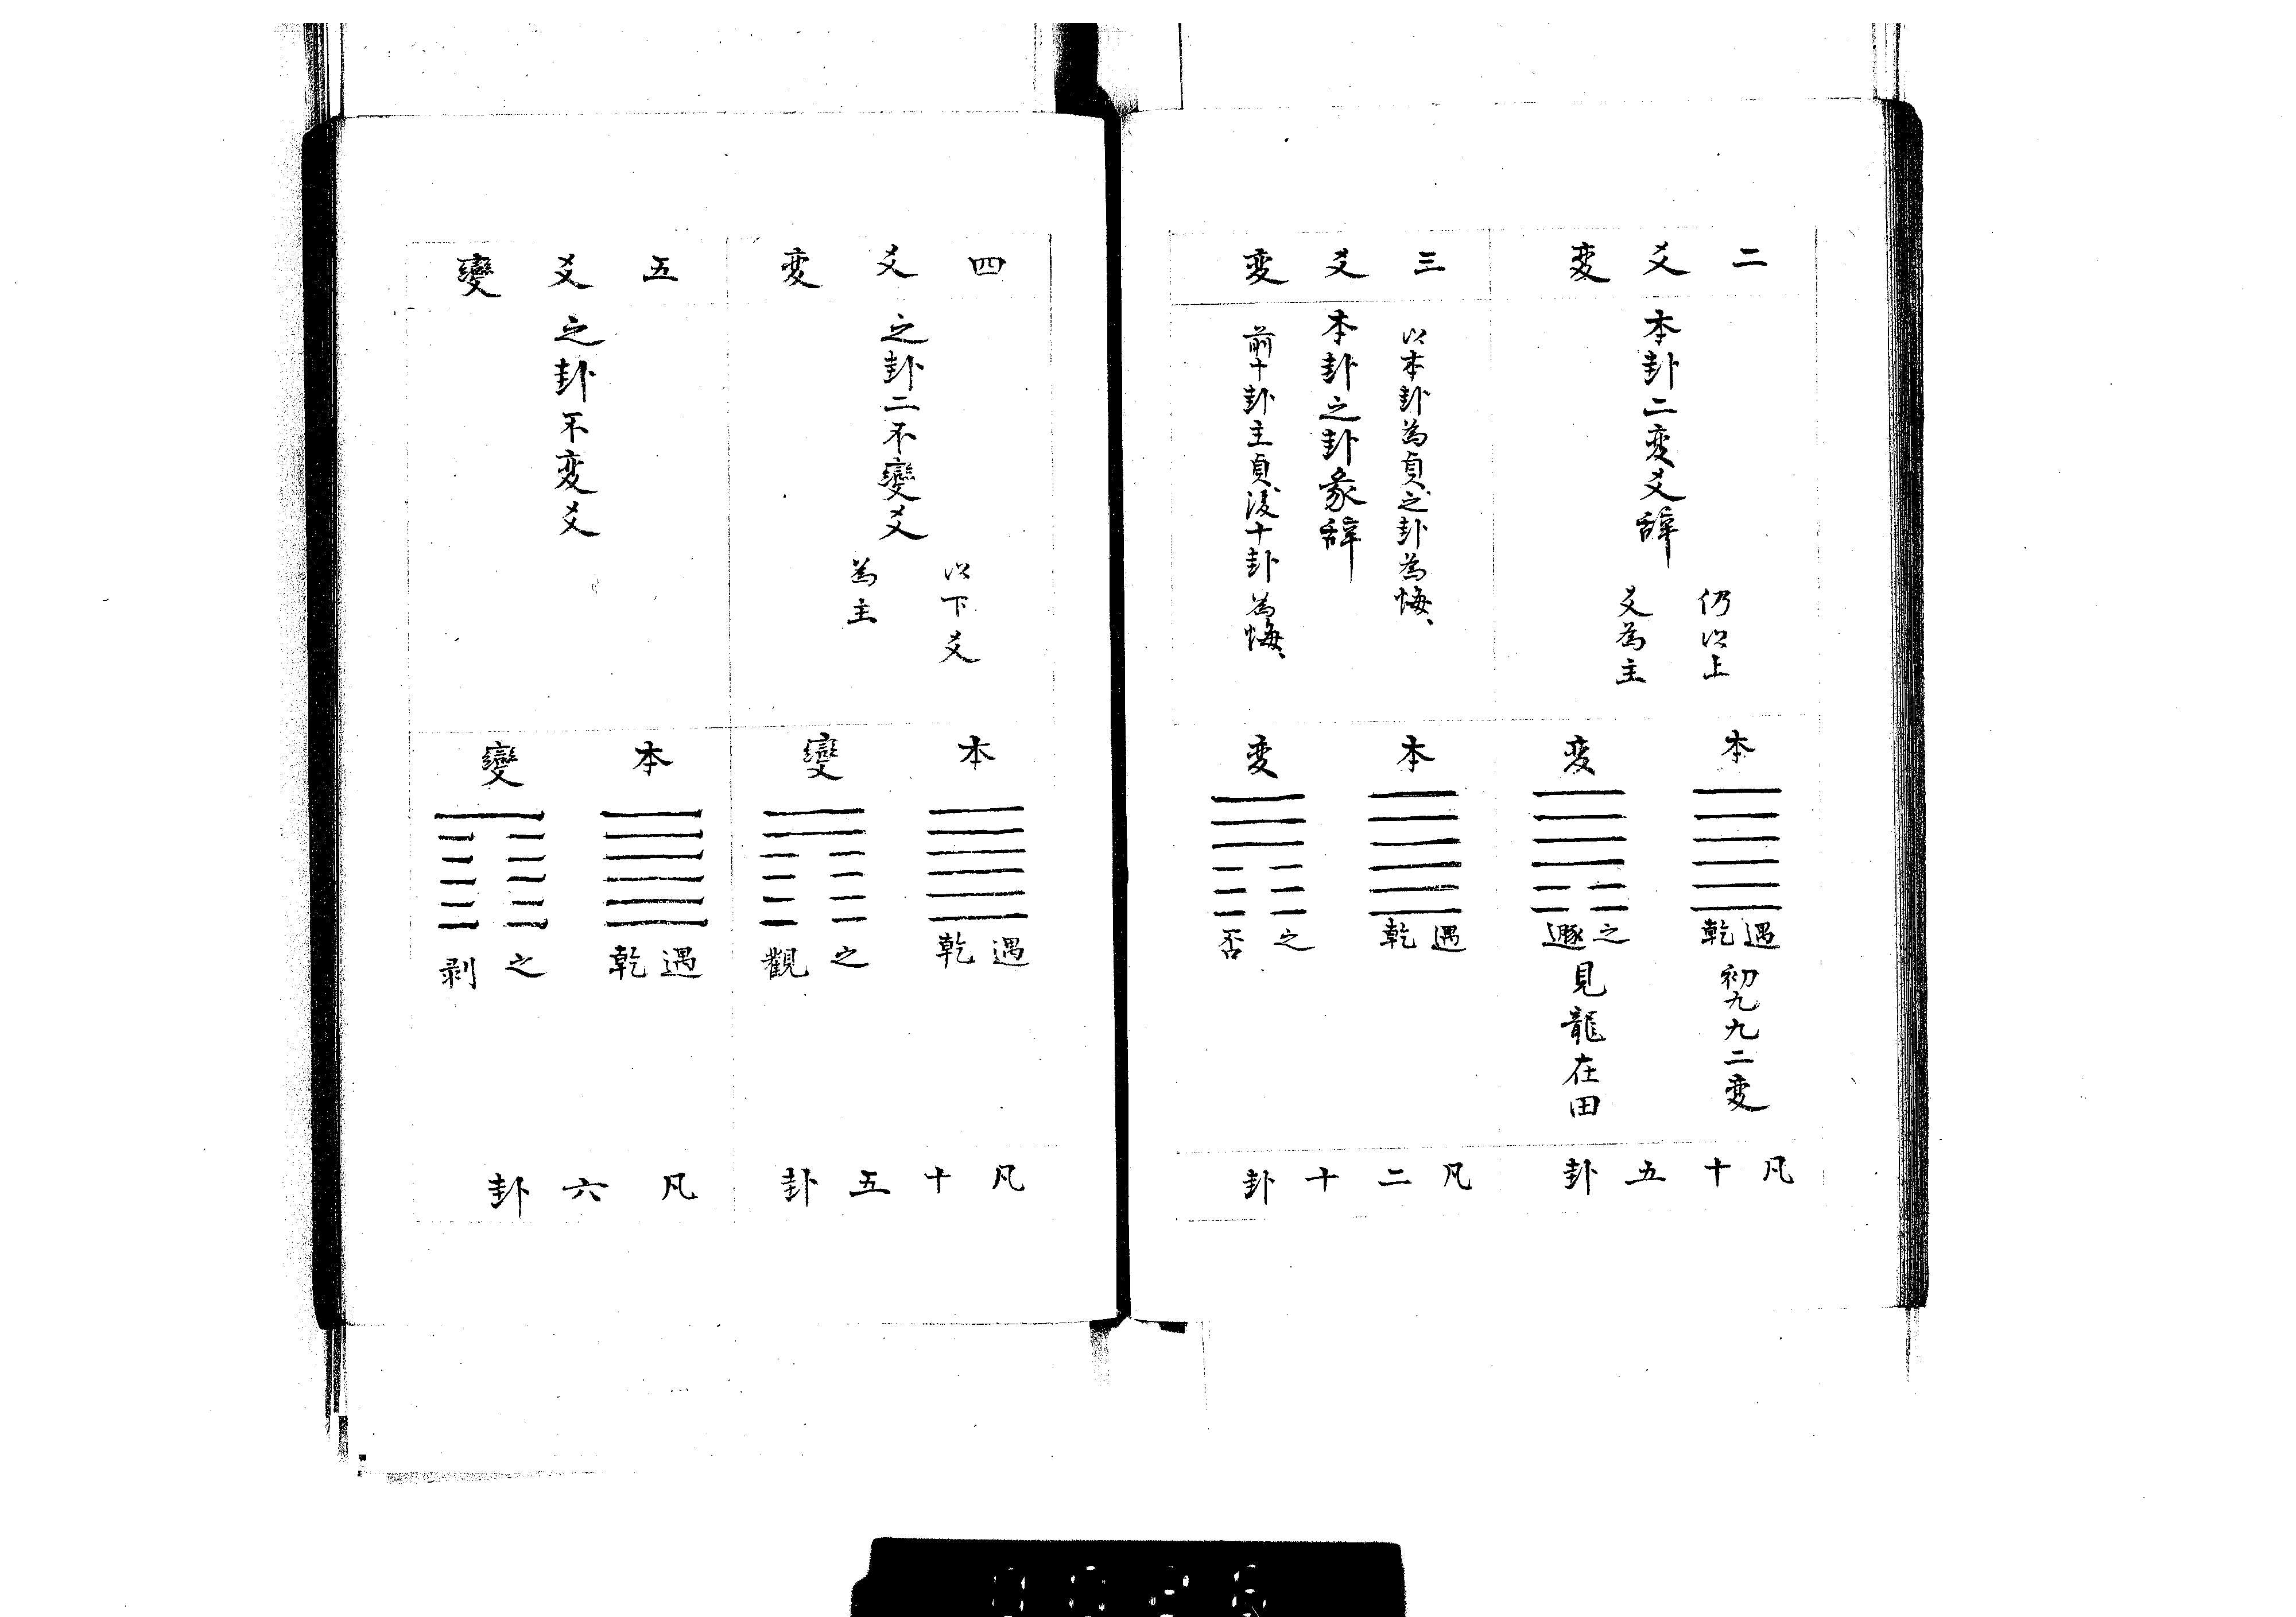 二爻変
本卦二変爻辞
仍以上
爻為主
本
遇乾
初九九二変
変
之遯
見龍在田
凡十五卦
三爻変
以本卦為貞之卦為悔、
本卦之卦彖辞
前十卦主貞後十卦為悔、
本
遇乾
変
之否
凡二十卦
四爻変
之卦二不變爻
以下爻
為主
本
遇乾
變
之觀
凡十五卦
五爻變
之卦不変爻
本
遇乾
變
之剥
凡六卦